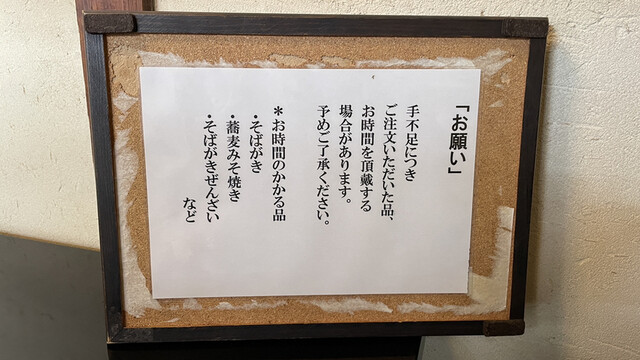 「お願い」
手不足につき
ご注文いただいた品、
お時間を頂戴する
場合があります。
予めご了承ください。
＊お時間のかかる品
・そばがき
・蕎麦みそ焼き
・そばがきぜんざい
など